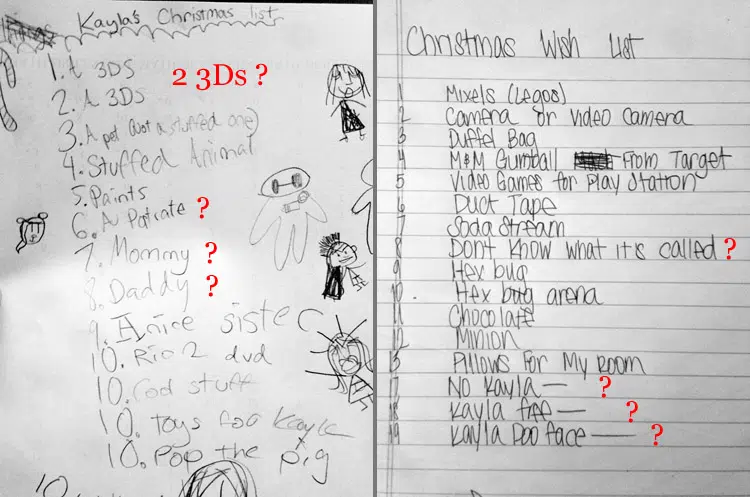 Kayla's Christmas list
1. A 3DS
2 3Ds ?
2. A 3DS
3. A pet (not a stuffed one)
4. Stuffed Animal
5. Paints
6. A Patrate ?
7. Mommy ?
8. Daddy ?
9. A nice sister
10. Rio 2 dvd
10. God stuff
10. Toys foo Kayla
10. Pop the pig
10.
Christmas Wish List
1 Mixels (Legos)
2 Camera or video camera
3 Duffel Bag
4 M&M Gumball From Target
5 Video Games for Play Station
6 Duct Tape
7 Soda Stream
8 Dont know what it's called ?
9 Hex bug
10. Hex bug arena
11 Chocolate
12 Minion
13 Pillows For My Room
17 No Kayla — ?
18 Kayla free — ?
19 Kayla Poo face — ?